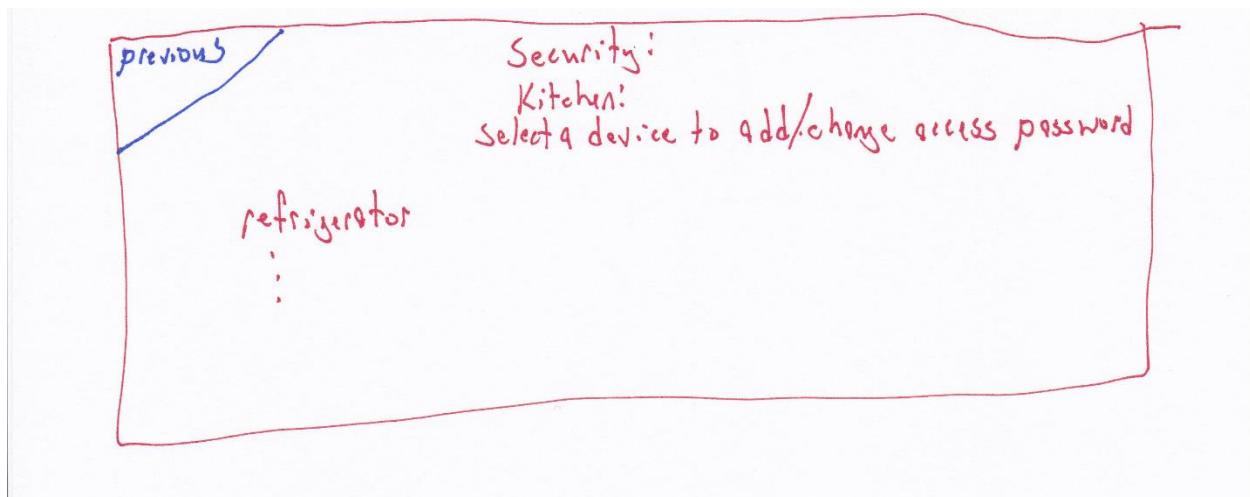 previous
Security:
Kitchen:
select a device to add/change access password
refrigerator
⋮